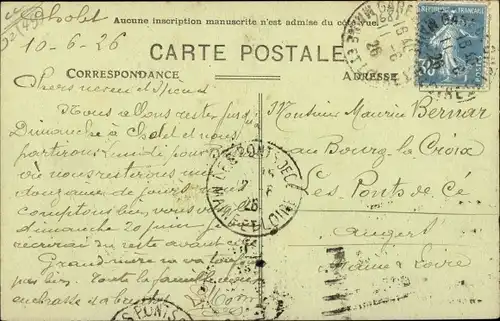 Cholet
Aucune inscription manuscrite n'est admise du côté vue.
10-6-26
CARTE POSTALE
CORRESPONDANCE
ADRESSE
Chers neveu et nièce
Nous allons rester jusqu'
Dimanche à Cholet et nous
partirons Lundi pour
où nous resterons une
douzaine de jours nous
comptons bien vous voir
dimanche 20 juin je
récrirai du reste avant
Grand'mère ne va toujours
pas bien. Toute la famille vous
embrasse
Monsieur Maurice Bernar
au Bourg la Croix
Les Ponts de Cé
Angers
Maine & Loire
LES PONTS DE CÉ
MAINE-ET-LOIRE
26